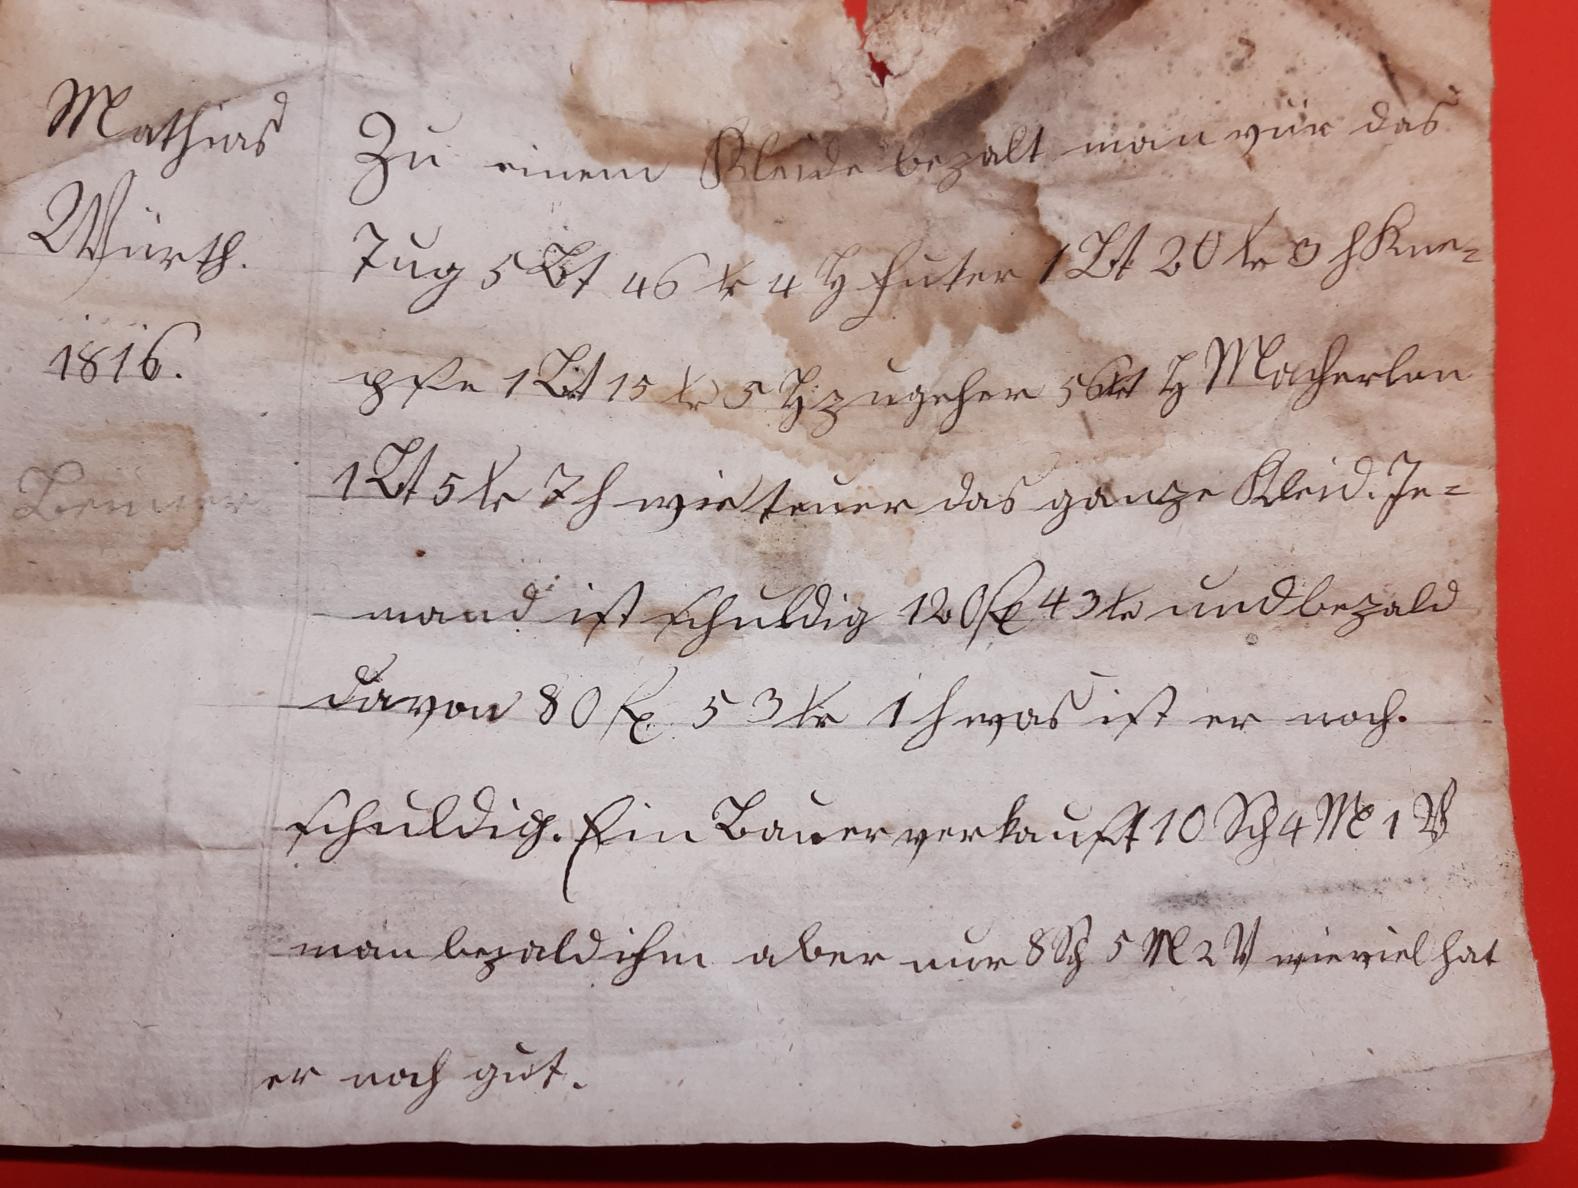 Mathias
Würth.
1816.
Zu einem Kleide bezalt man vür das
Tug 5 Bt 46 kr 4 H Futer 1 Bt 20 kr 3 h Kne=
pfe 1 Bt 15 kr 5 H zugeher H Macherlon
1 Bt 5 kr 7 h wie teuer das ganze Kleid. Je=
mand ist schuldig 120 fl 43 kr und bezald
davon 80 fl. 53 kr 1 h was ist er noch.
schuldig. Ein Bauer verkauft 10 Sch 4 M 1 V
man bezald ihm aber nur 8 Sch 5 M 2 V wieviel hat
er noch gut.